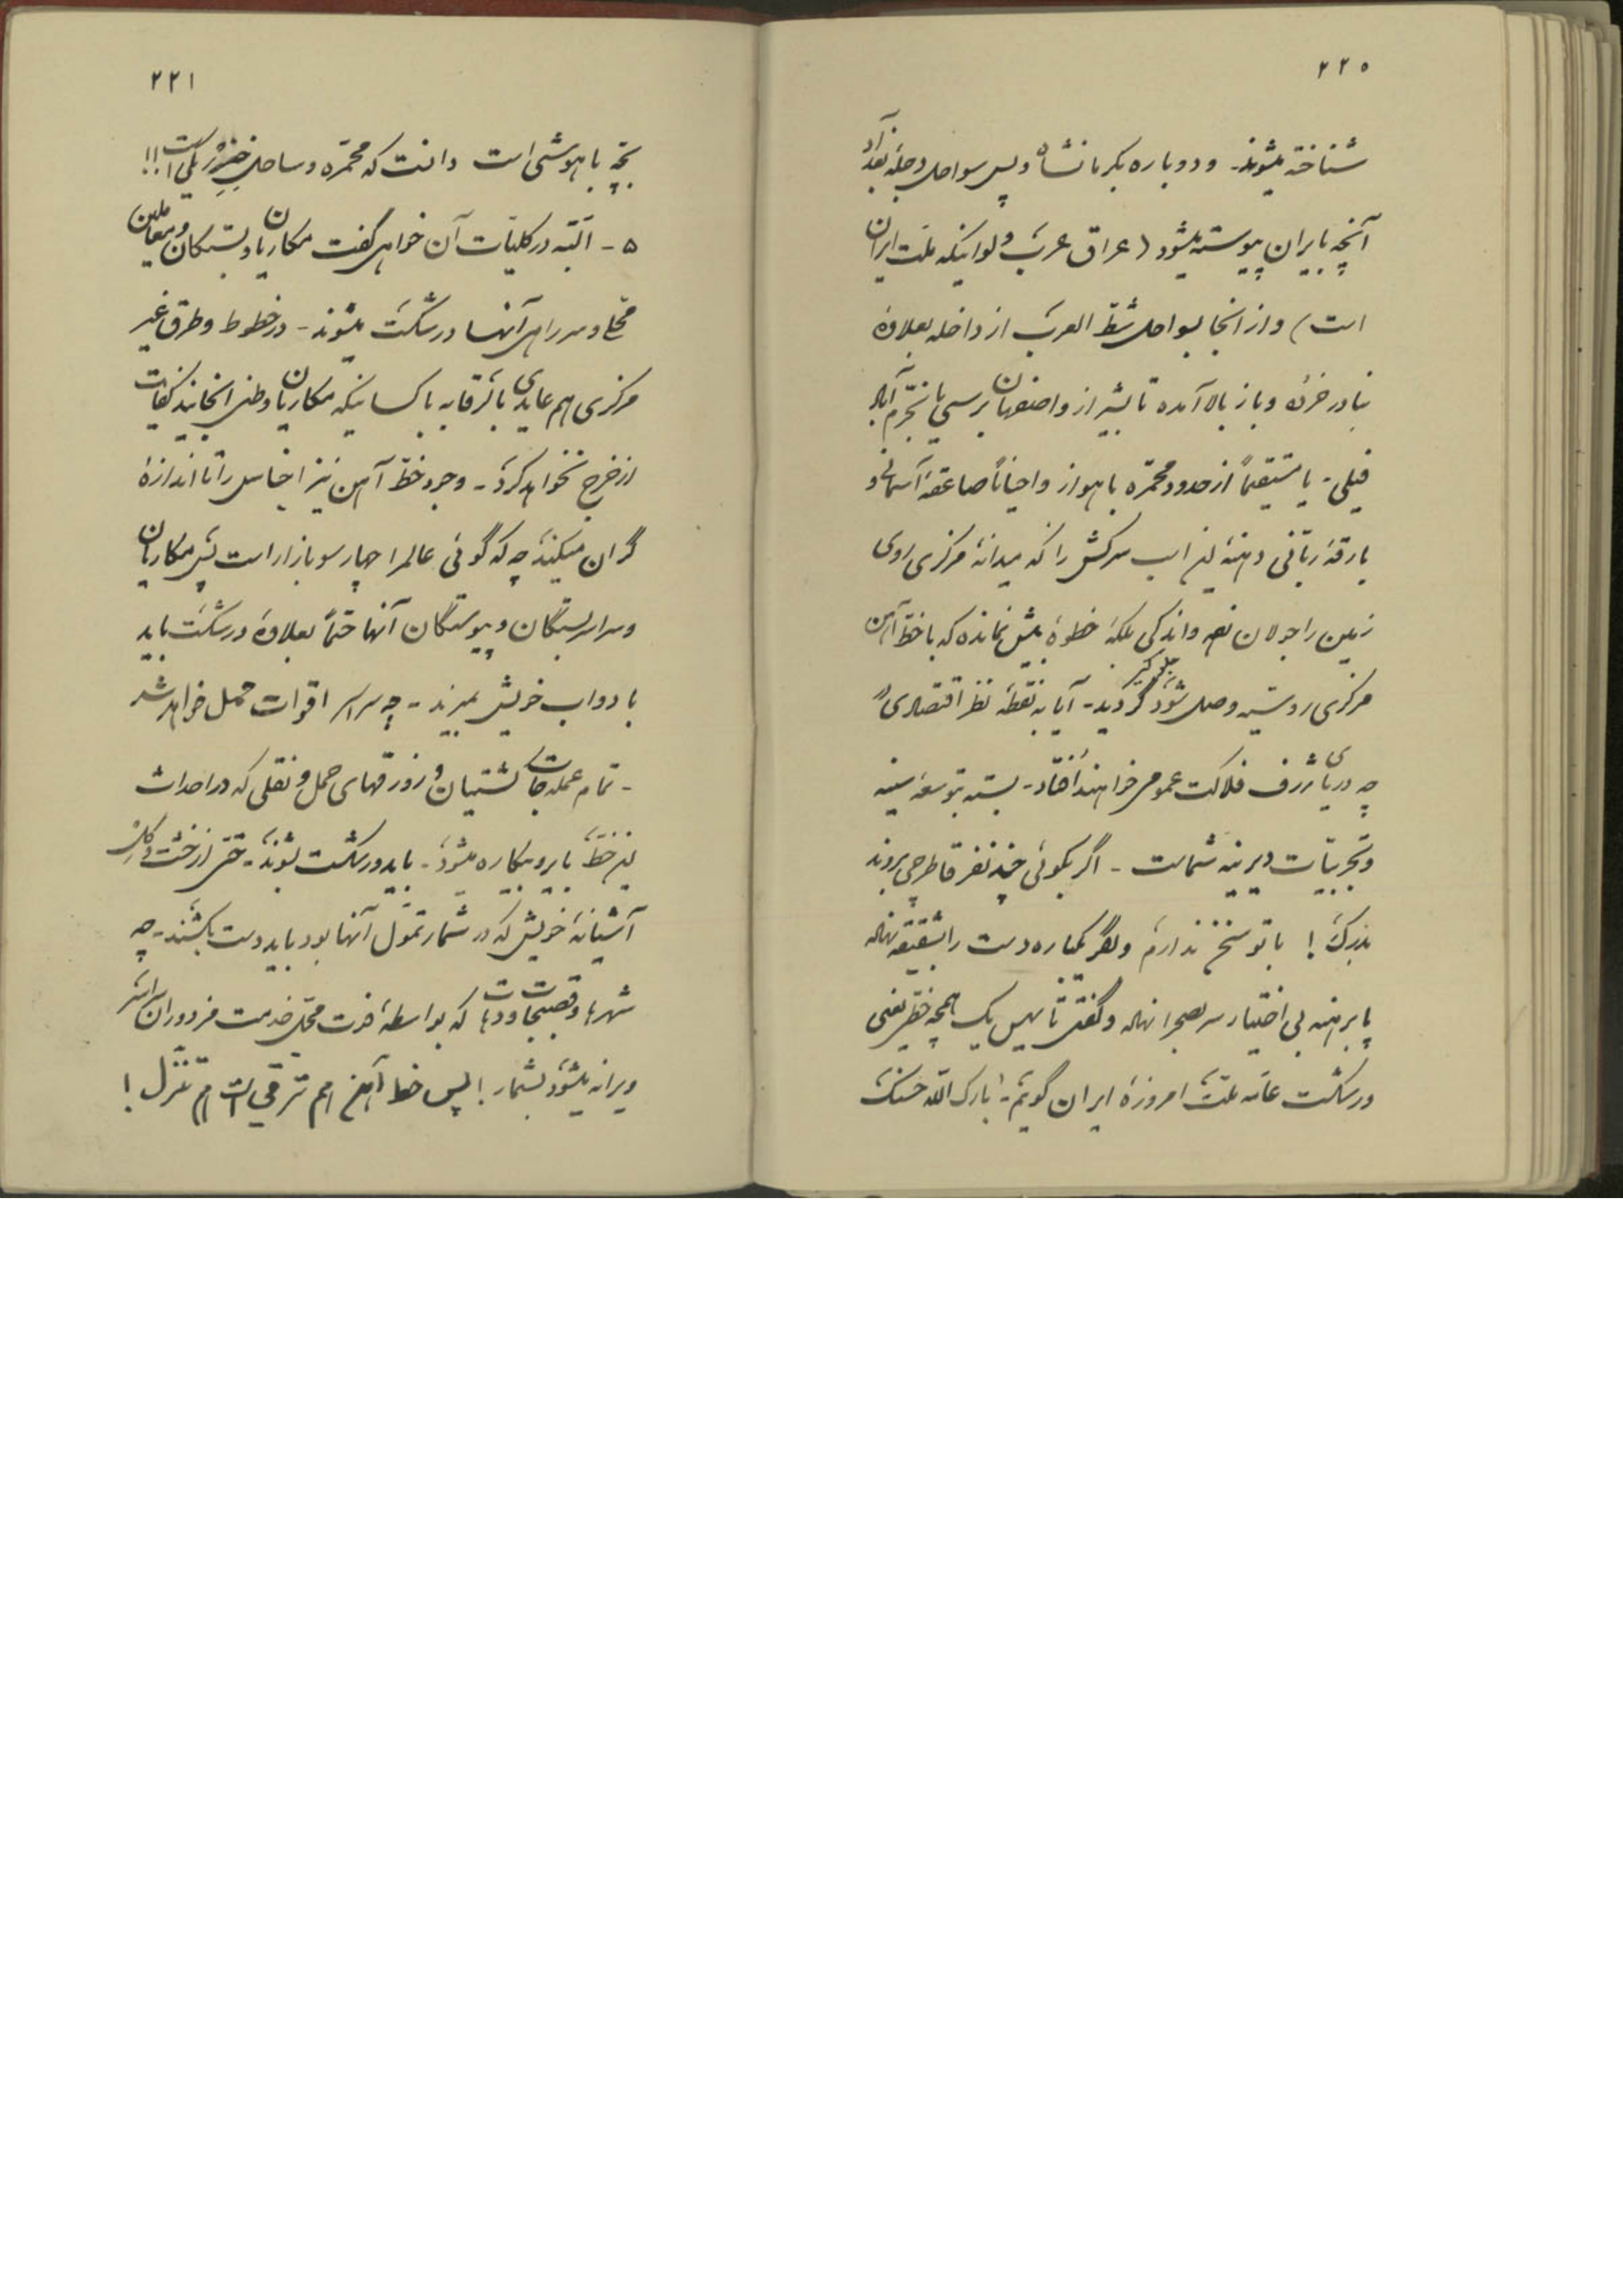 ۲۲۰
شناخته میشوند - و دوباره بکرمانشاه و پس سواحل دجله بغداد
آنچه بایران پیوسته میشود (عراق عرب ولو اینکه ملت ایران
است) و از آنجا بسواحل شط العرب از داخله بعلاوه
بنادر خزه و باز بالا آمده تا بشیراز و اصفهان برسی یا بخرم آباد
فیلی - یا مستقیماً از حدود محمره باهواز و احیاناً صاعقه آسمانی و
بارقه ربانی دهنه این اسب سرکش را که میدانه مرکزی روی
زمین را جولان و اندکی بلکه خطوهٔ بیش نمانده که با خط آهن
مرکزی روسیه وصل شود گردید - آیا به نقطه نظر اقتصادی
چه دریای ژرف فلاکت عمومی خواهند افتاد - بسته بتوسعه سینه
و تجربیات دیرینه شماست - اگر بگوئی چند نفر قاطرچی بروند
بدرک! با تو سخن ندارم و دست را بشقیقه نهاده
پا برهنه بی اختیار سر بصحرا نهاده و یک همچه خطر یعنی
ورشکست عامه ملت امروزهٔ ایران گویم - بارک الله حسنک
۲۲۱
بچه باهوشی است دانست که محمره و ساحل خزر یکی است!!
۵ - البته در کلیات آن خواهی گفت مکاریان و بستگان و متعاملین
محلی و سر راهی آنها ورشکست میشوند - در خطوط و طرق غیر
مرکزی هم عایدی بالمرقابه با کسانیکه مکاریان وطنی آنجایند کفایت
از خرج نخواهد کرد - وجود خط آهن نیز اجناس را تا اندازهٔ
گران میکند چه که گوئی عالم را چهار سو بازار است پس مکاریان
و سراسر بستگان و پیوستگان آنها حتماً بعلاوه ورشکست باید
با دواب خویش بمیرند - چه سراسر اقوات حمل خواهد شد
- تمام عمله جات کشتیبان و زورقهای حمل و نقلی که در احداث
این خط بایر و بیکاره میشود - باید ورشکست بشوند - حتی از خشت و گل
آشیانهٔ خویش که در شمار تمول آنها بود باید دست بکشند - چه
شهرها و قصبجات و دهات که بواسطهٔ فوت محل خدمت مزدوران
ویرانه میشود بشمار! پس خط آهن هم ترقی است هم تنزل!